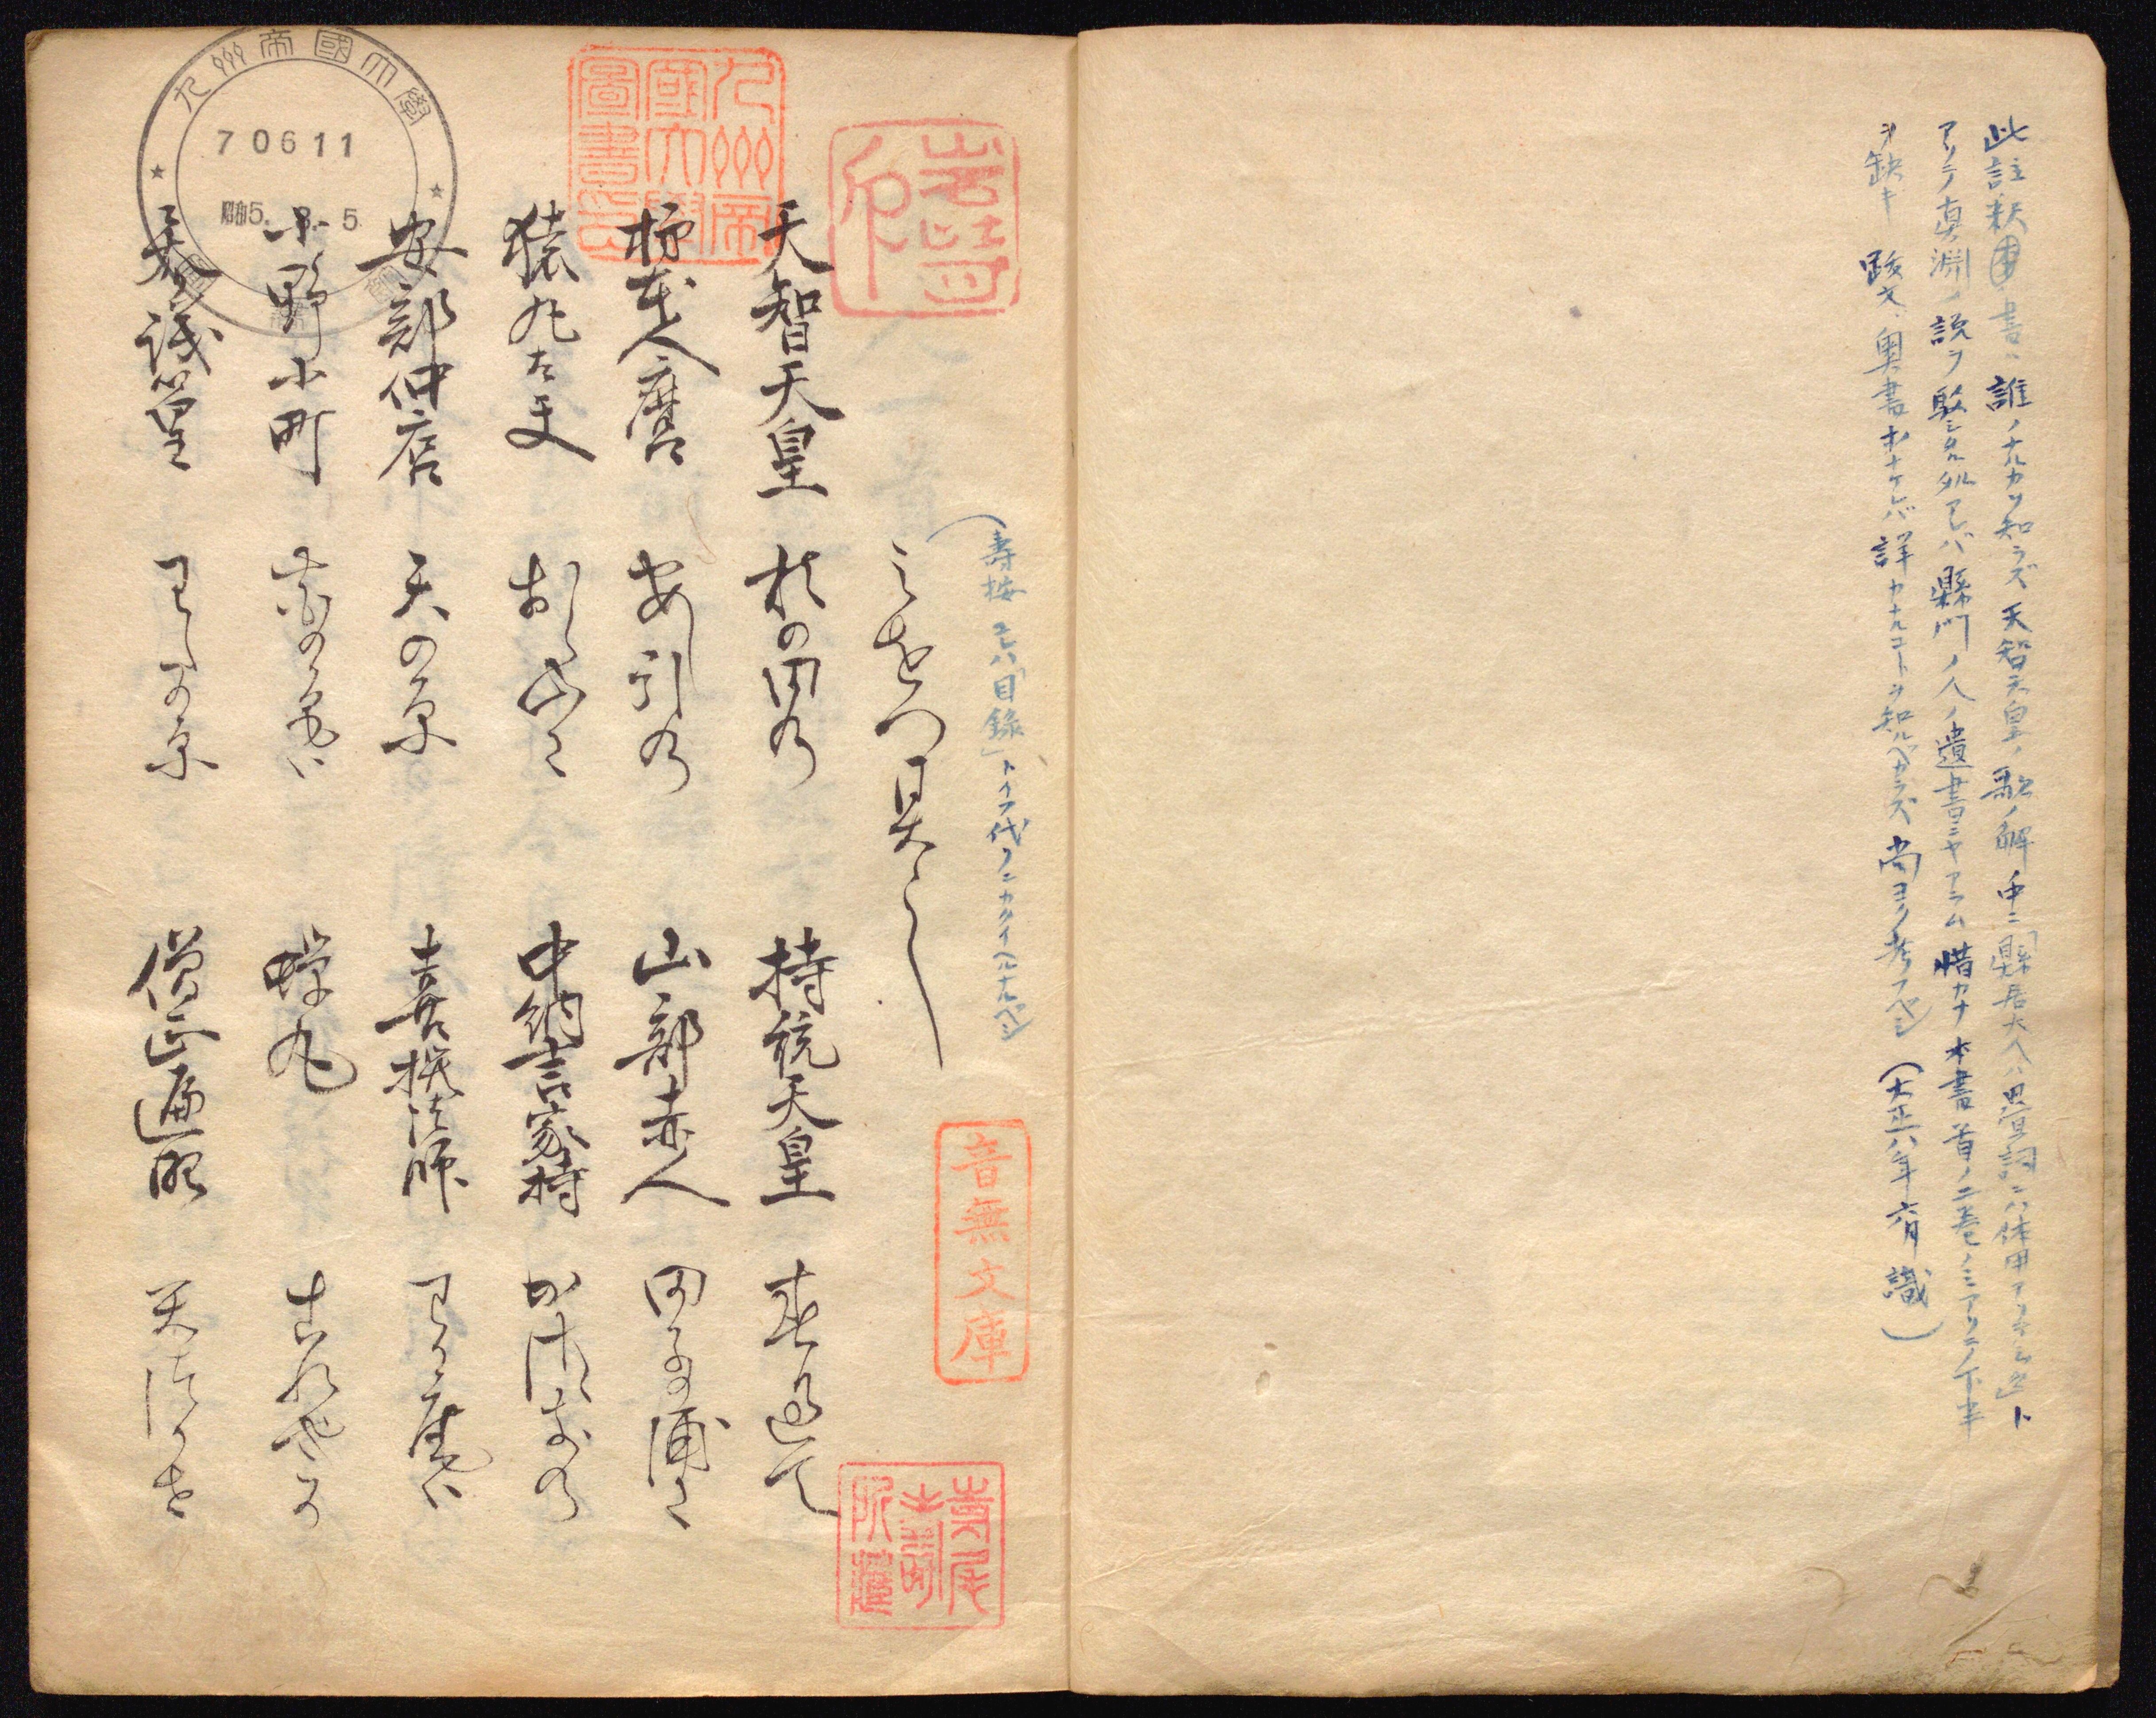 此註釈書ハ誰ノナルカヲ知ラズ天智天皇ノ歌ノ解中ニ「縣居大人ハ 詞ニハ体用アリト 」ト
アリテ真淵ノ説ヲ駁シタル処アレバ縣門ノ人ノ遺書ニヤアラム惜カナ本書首ノ二巻ノミアリテ下半
ヲ缺キ跋文奥書オナケレバ詳カナルコトヲ知ルベカラズ尚ヨク考フベシ(大正八年六月識)
(寿按 コハ「目録」トイフ代フニカクイヘルナルベシ)
天智天皇 秋の田の 持統天皇 春過て
柿本人麿 安し引の 山部赤人 田子の浦に
猿丸太夫 おく山に 中納言家持 かさゝきの
安部仲麿 天の原 喜撰法師 わか庵は
小野小町 花の色は 蝉丸 これやこの
参議篁 わたの原 僧正遍昭 天津かせ
九州帝國大學圖書印
音無文庫
九州帝國大學
70611
昭5. 5